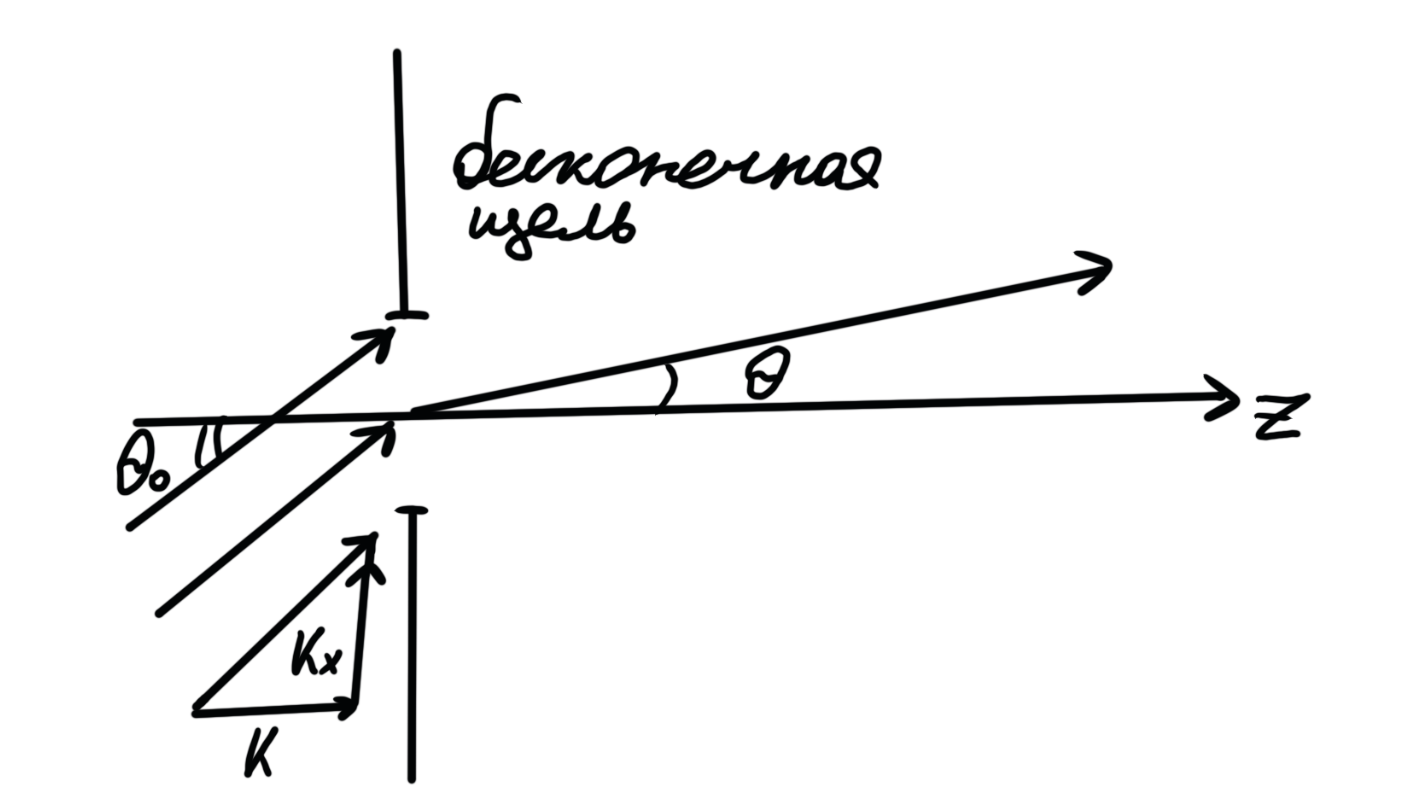 бесконечная
щель
θ
z
θ₀
Kx
K